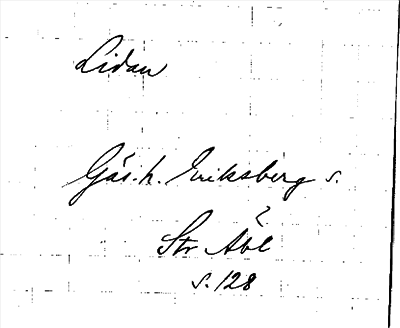 Lidan
Gäs. h. Eriksberg s.
?
Str Åbl
s. 128